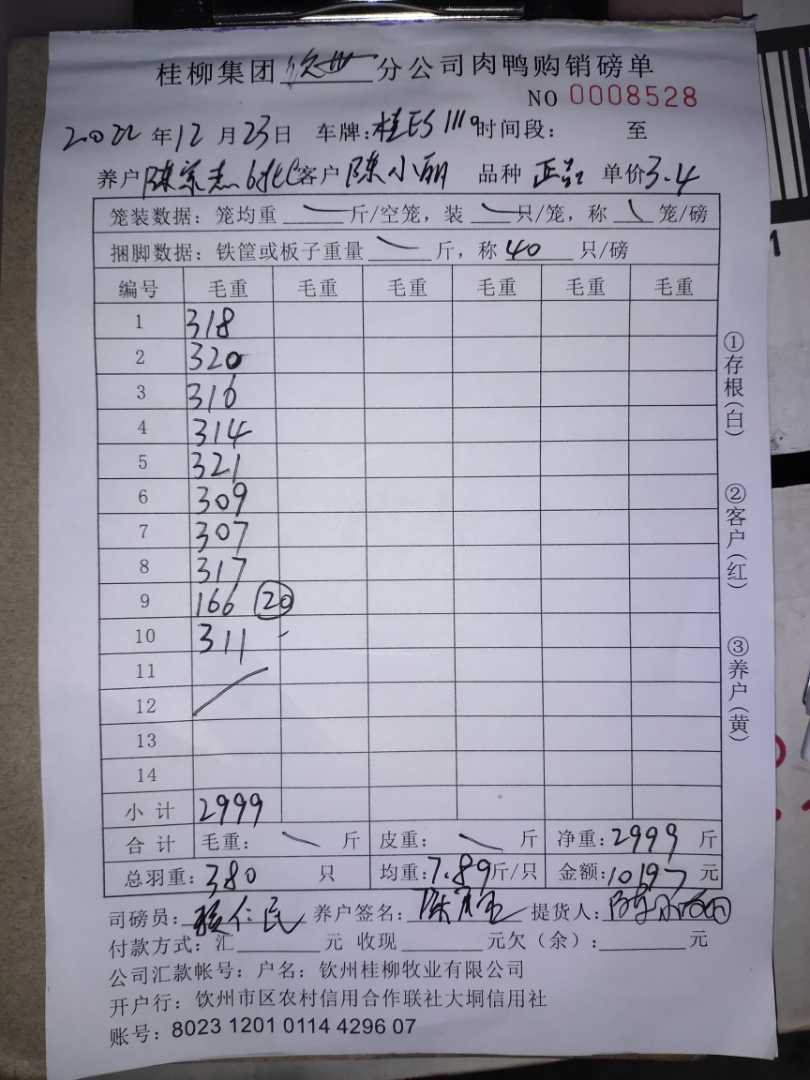 桂柳集团钦州分公司肉鸭购销磅单
NO 0008528
2022年12月23日 车牌:桂 时间段: 至
养户 客户 陈小丽 品种 单价3.4
笼装数据: 笼均重 斤/空笼, 装 只/笼, 称 笼/磅
捆脚数据: 铁筐或板子重量 斤, 称40只/磅
编号 毛重 毛重 毛重 毛重 毛重 毛重
1 318
2 320
3 316
4 314
5 321
6 309
7 307
8 317
9 166 20
10 311
11
12
13
14
小计 2999
合计 毛重: 斤 皮重: 斤 净重:2999斤
总羽重:380 只 均重:7.89斤/只 金额:10197元
司磅员: 养户签名: 提货人:
付款方式: 汇 元 收现 元欠(余): 元
公司汇款帐号: 户名: 钦州桂柳牧业有限公司
开户行: 钦州市区农村信用合作联社大垌信用社
账号: 8023 1201 0114 4296 07
①存根(白)
②客户(红)
③养户(黄)